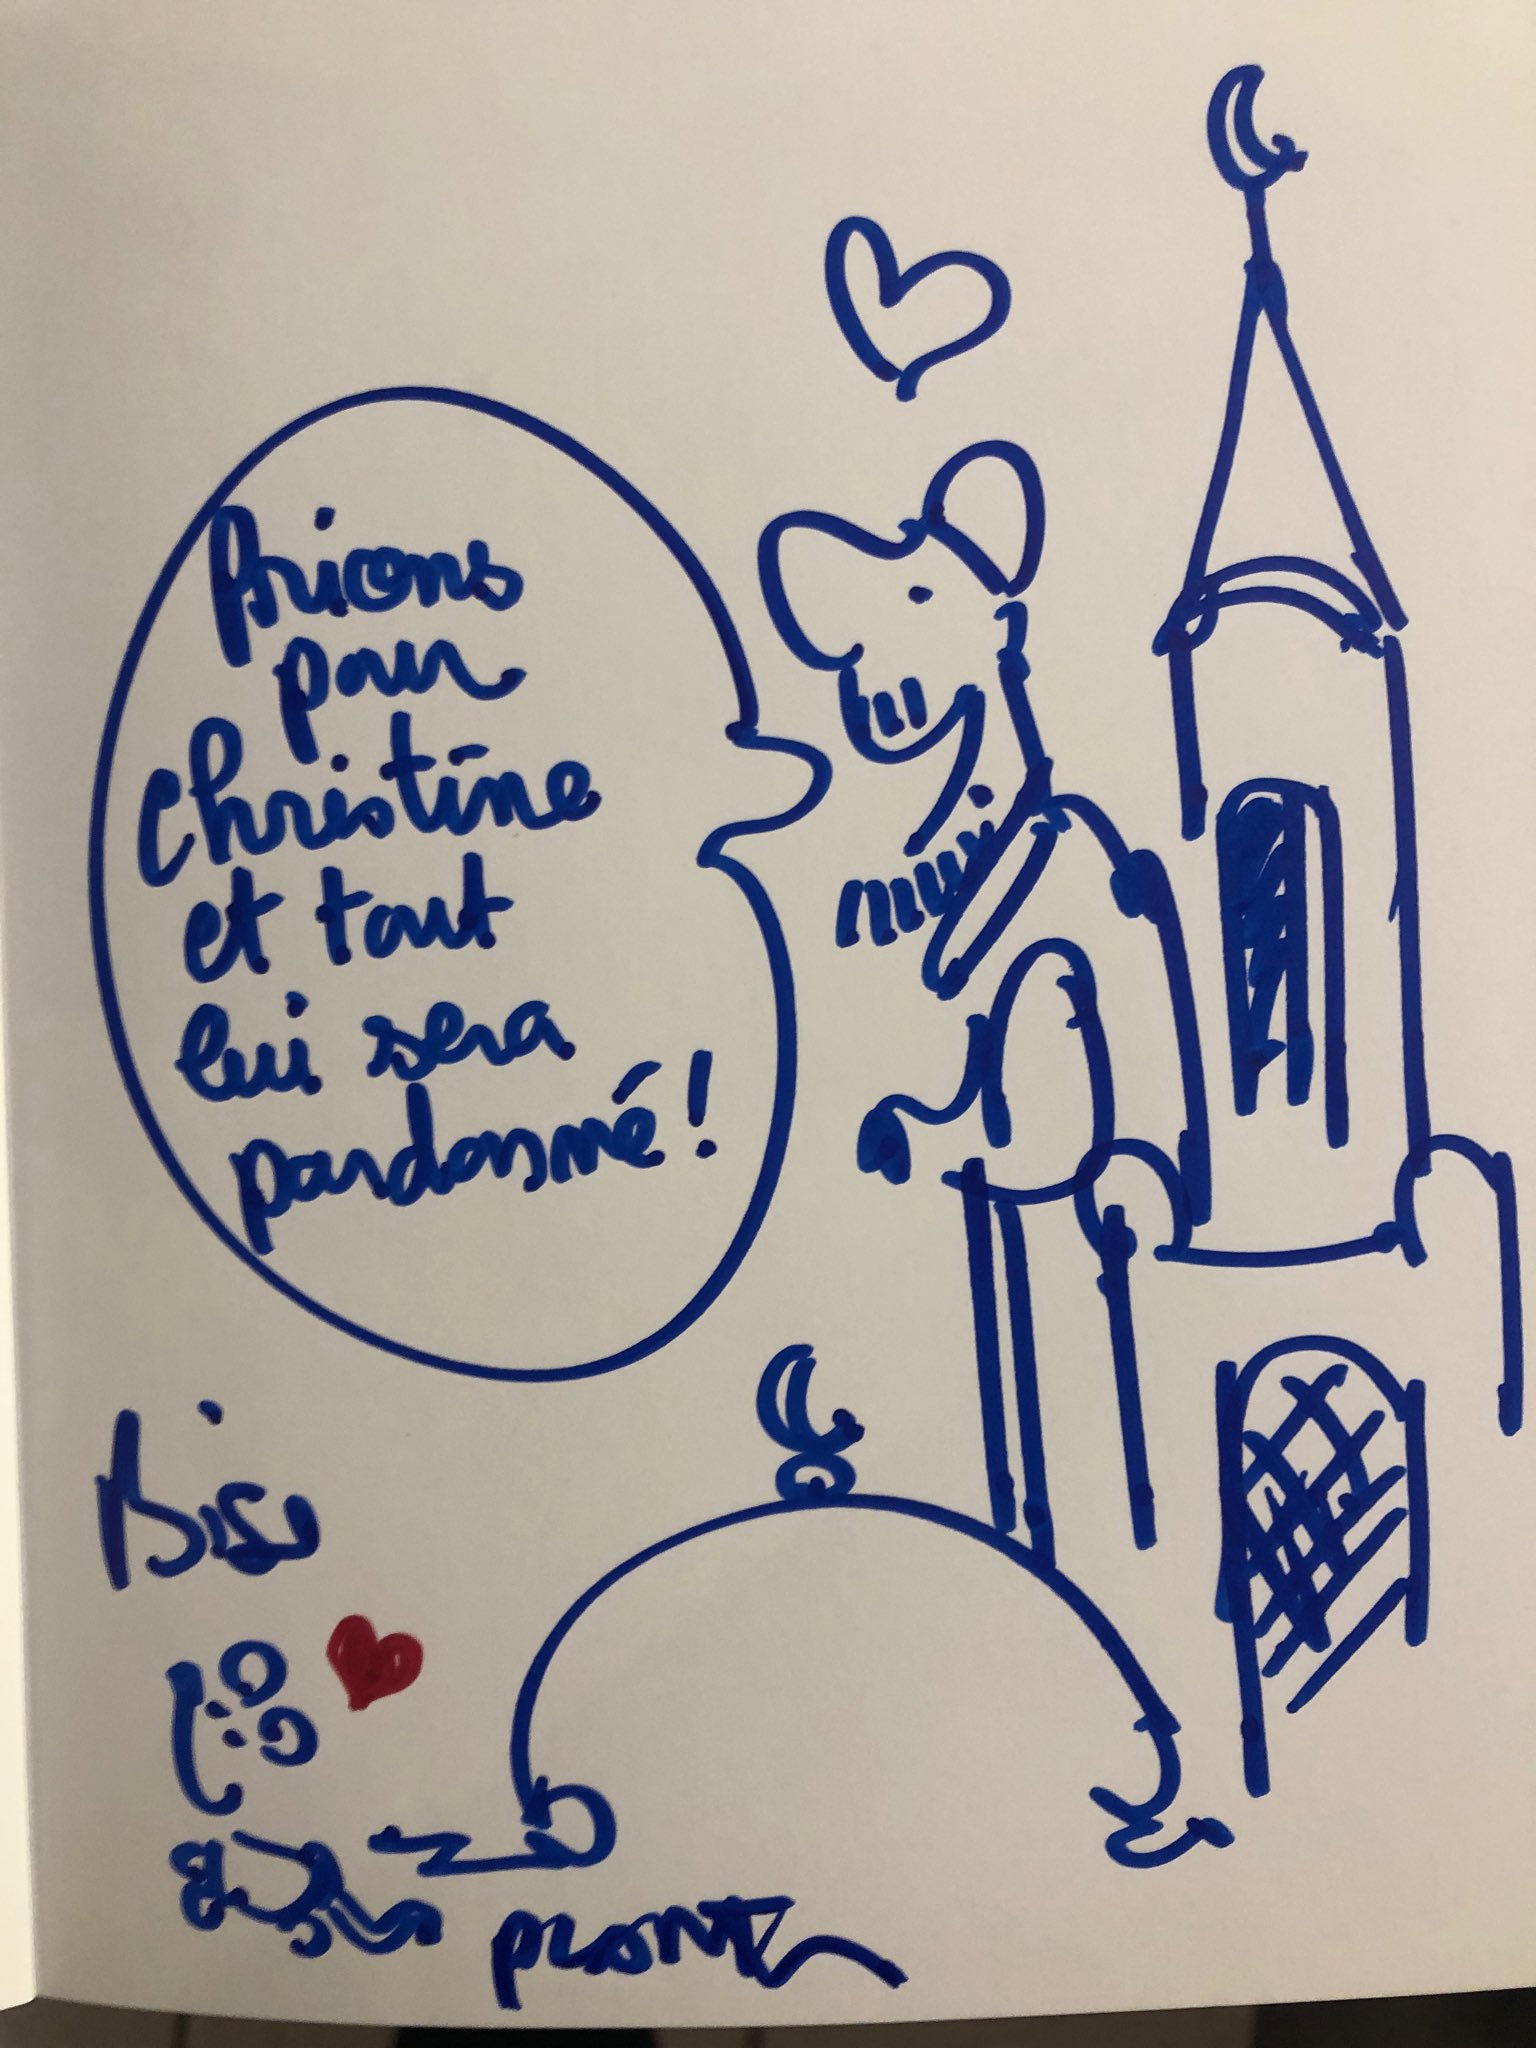 Prions
pour
Christine
et tout
lui sera
pardonné!
Bise
plantu